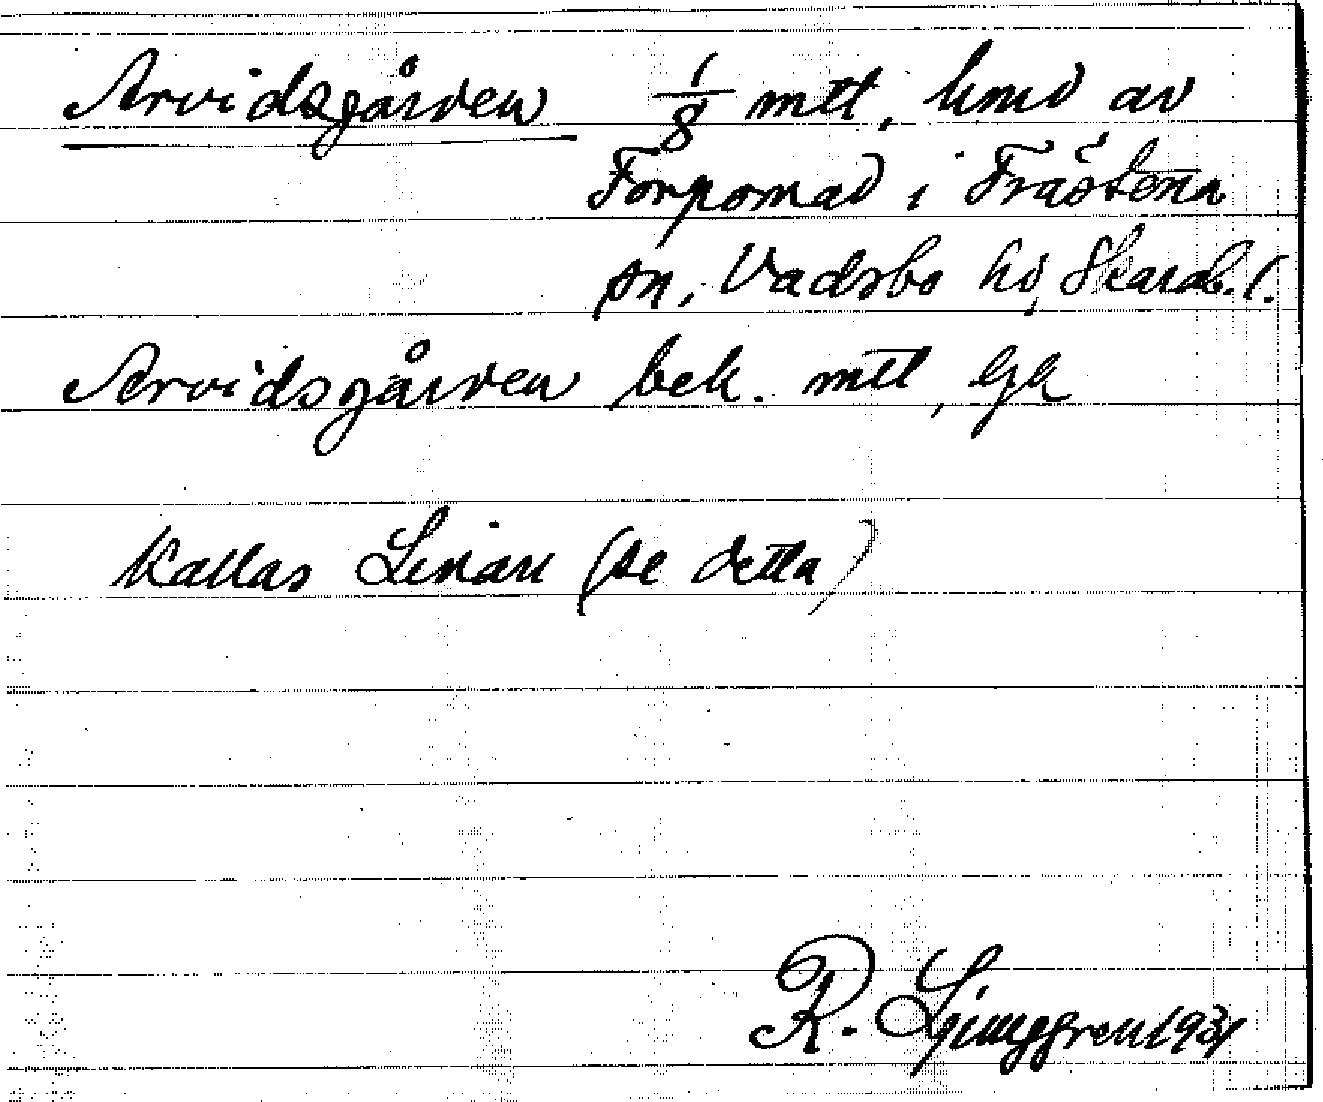 Arvidsgården 1/8 mtl, hmd av
Forpomad i Frästena
sn, Vadsbo hd, Skarab. l.
Arvidsgården bek. mtl, Gk
Kallas (se detta)
R. Ljunggren 1931